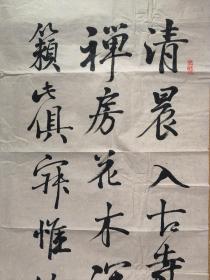 清晨入古寺
禅房花木深
籁此俱寂惟